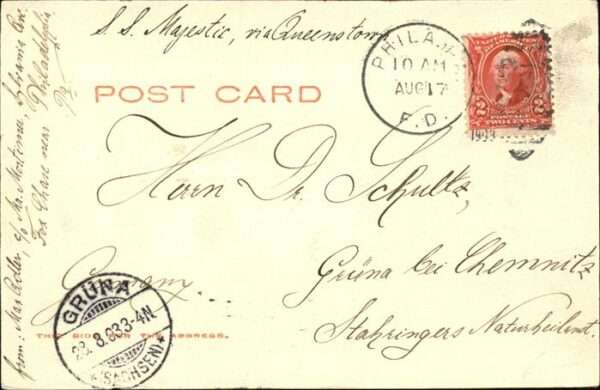 S. S. Majestic, via Queenstown
PHILA. PA.
10 AM
AUG 17
P. D.
POSTAGE
2 TWO CENTS 2
1903
POST CARD
Herrn Dr. Schultz,
Grüna bei Chemnitz
Germany.
Stahringers Naturheilanst.
GRÜNA
28 8 03 3-4N
*(SACHSEN)*
THIS SIDE FOR THE ADDRESS.
from: Max Adler, c/o Mr. Mortimer, Sylvania Ave.
Fox Chase near Philadelphia
Pa